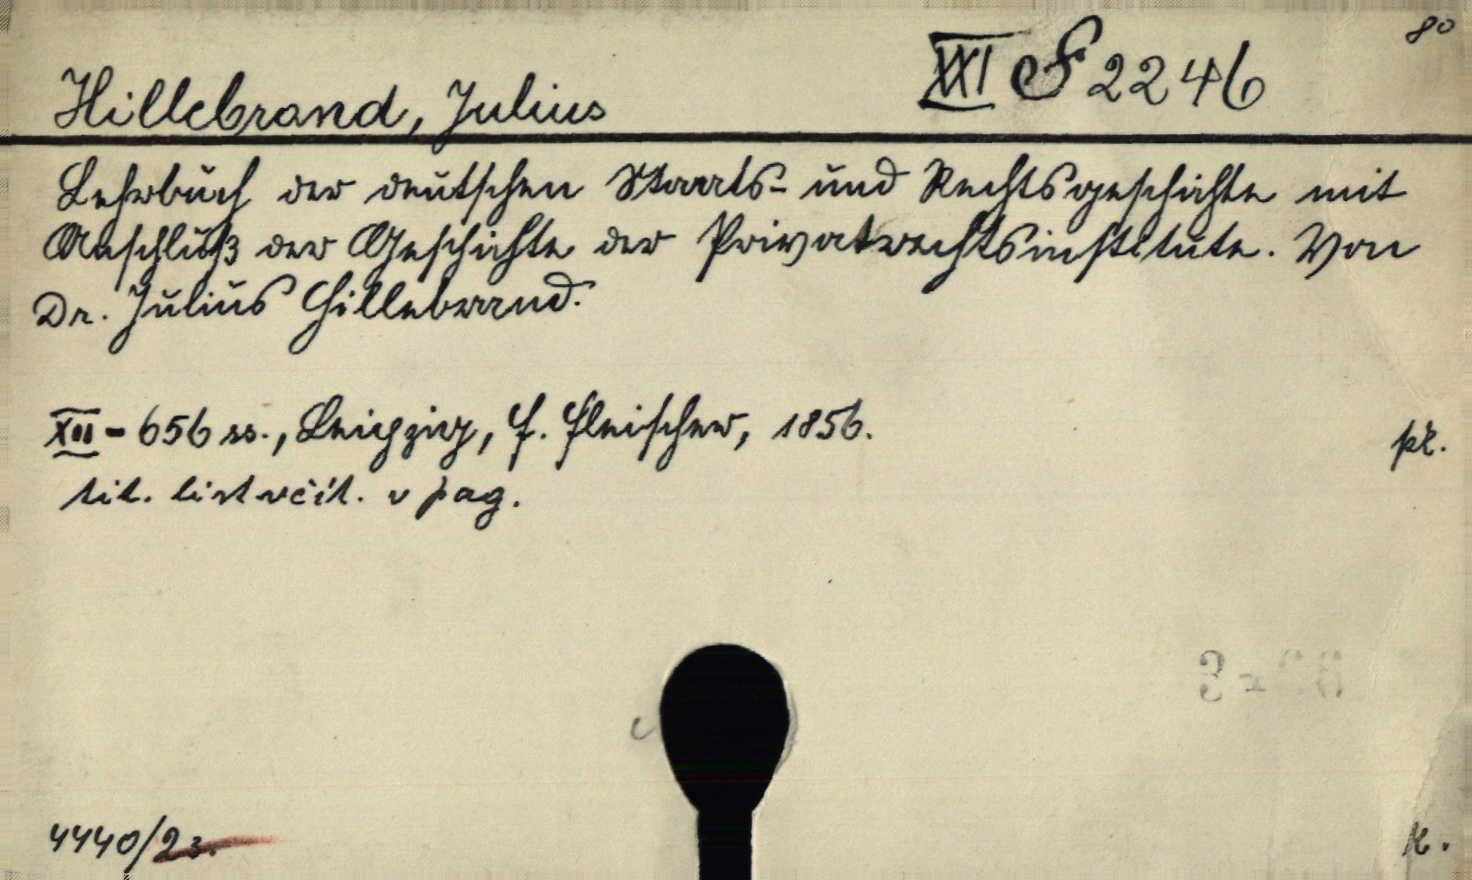 8°
XXI F 2246
Hillebrand, Julius
Lehrbuch der deutschen Staats- und Rechtsgeschichte mit
Anschluß der Geschichte der Privatrechtsinstitute. Von
Dr. Julius Hillebrand.
XII - 656 ss., Leipzig, F. Fleischer, 1856.
př.
tit. list včít. v pag.
4440/23.